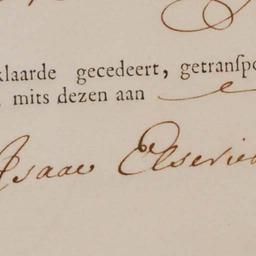 klaarde gecedeert, getranſpo
mits dezen aan
Isaac Elsevie